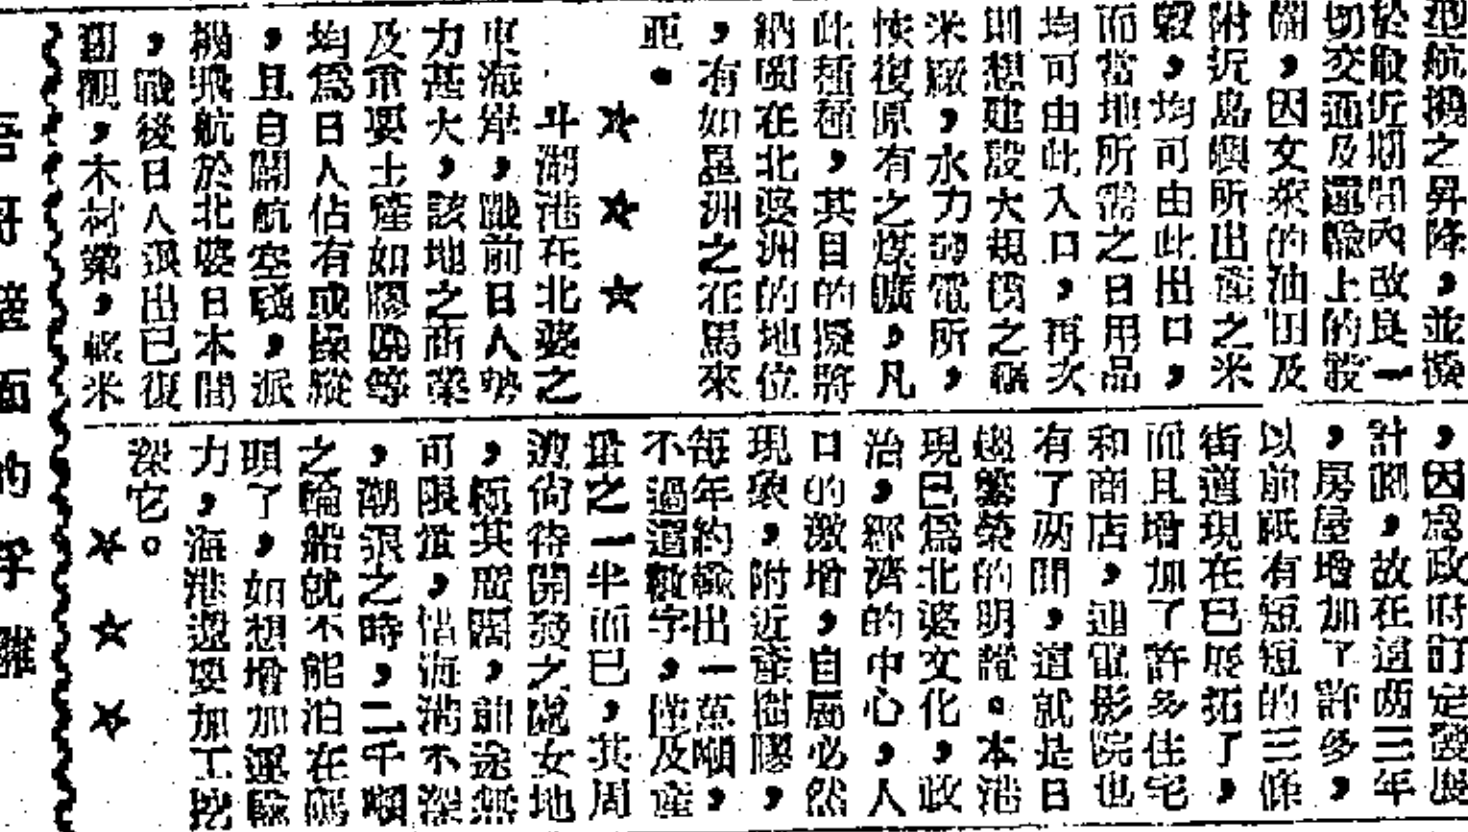 型航機之昇降，並擬
於最近期間內改良一
切交通及運輸上的設
備，因女萊的油田及
附近島嶼所出產之米
穀，均可由此出口，
而當地所需之日用品
均可由此入口，再次
則想建設大規模之碾
米廠，水力的電所，
恢復原有之煤礦，凡
此種種，其目的擬將
納閩在北婆洲的地位
，有如星洲之在馬來
亞。
☆ ☆ ☆
斗湖港在北婆之
東海岸，戰前日人勢
力甚大，該地之商業
及重要土產如膠園等
均爲日人佔有或操縱
，且自闢航空綫，派
機飛航於北婆日本間
，戰後日人退出已復
舊觀，木材業，輕米
，因爲政府訂定發展
計劃，故在這兩三年
，房屋增加了許多，
以前祇有短短的三條
街道現在已展拓了，
而且增加了許多住宅
和商店，連電影院也
有了兩間，這就是日
趨繁榮的明證。本港
現已爲北婆文化，政
治，經濟的中心，人
口的激增，自屬必然
現象，附近產樹膠，
每年約輸出一萬噸，
不過這數字，僅及產
量之一半而已，其周
渡尚待開發之處女地
，極其廣闊，前途無
可限量，惜海港不深
，潮退之時，二千噸
之輪船就不能泊在碼
頭了，如想增加運輸
力，海港還要加工挖
深它。
☆ ☆ ☆
吾哥 面的浮雕